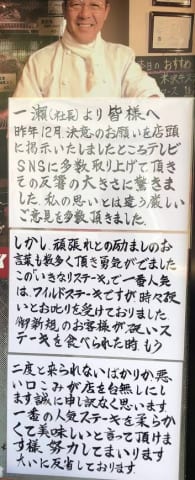 本日のおすすめ
米沢牛
一瀬(社長)より皆様へ
昨年12月決意のお願いを店頭
に掲示いたしましたところテレビ
SNSに多数取り上げて頂き
その反響の大きさに驚きま
した。私の思いとは違う厳しい
ご意見も多数頂きました。
しかし、頑張れとの励ましのお
言葉も数多く頂き勇気がでました
この「いきなりステーキ」で一番人気
は、ワイルドステーキですが時々硬い
とお叱りを受けております。
御新規のお客様が硬いス
テーキを食べられた時もう
二度と来られないばかりか、悪
い口こみが店を台無しにし
ます誠に申し訳なく思います
一番の人気ステーキを柔らか
くて美味しいと言って頂けま
す様努力してまいります
大いに反省しております